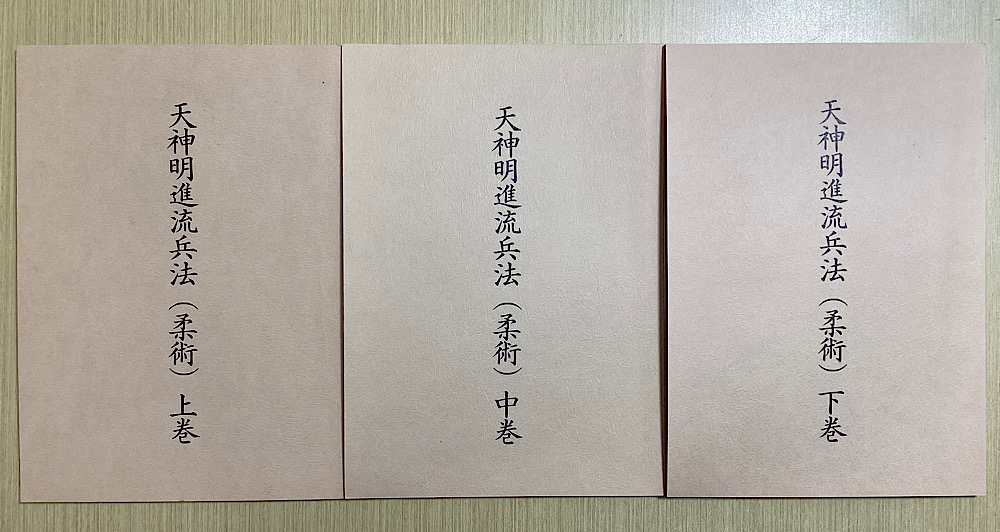 天神明進流兵法（柔術）上巻
天神明進流兵法（柔術）中巻
天神明進流兵法（柔術）下巻